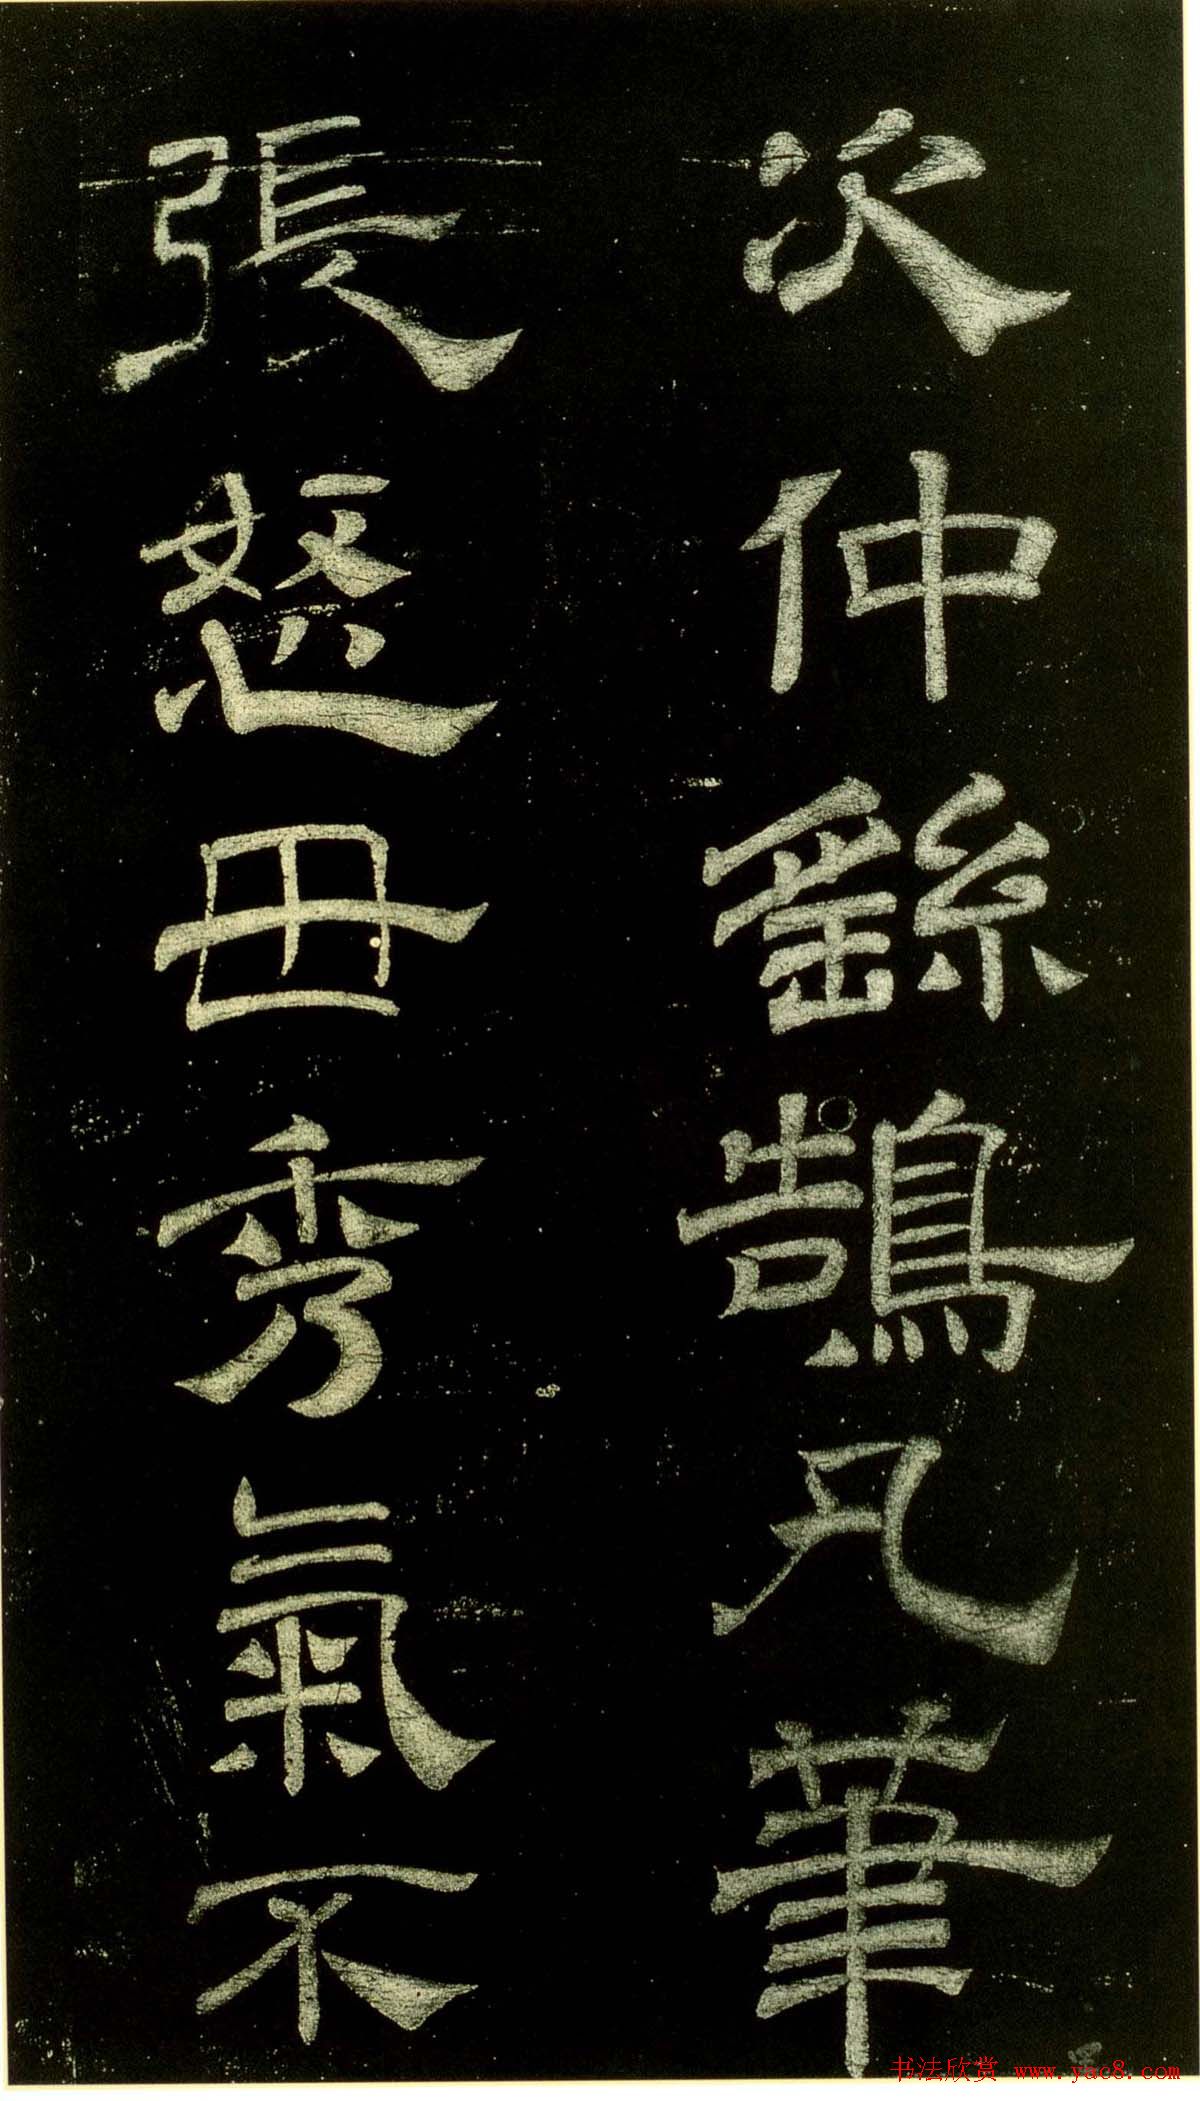 次仲繇鵠凡筆
張怒毋秀氣不
书法欣赏 www.yac8.com